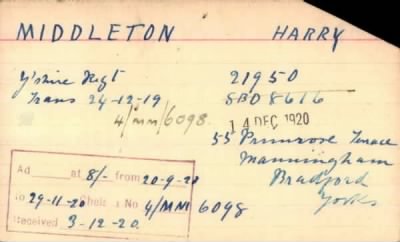 MIDDLETON HARRY
Y'shire Regt 21950
Trans 24-12-19 SBO 8616
4/MM/6098 14 DEC 1920
55 Primrose Terrace
Manningham
Bradford
Yorks
Ad at 8/- from 20-9-20
to 29-11-20 Chels No 4/MM 6098
Received 3-12-20.